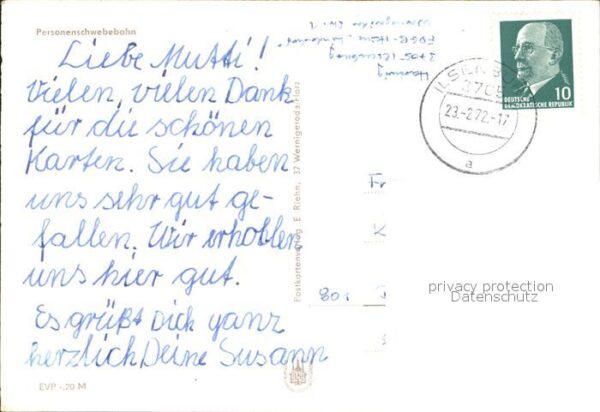 Personenschwebebahn
Liebe Mutti!
Vielen, vielen Dank
für die schönen
Karten. Sie haben
uns sehr gut ge-
fallen. Wir erholen
uns hier gut.
Es grüßt Dich ganz
herzlich Deine Susann
EVP -,20 M
Postkartenverlag E. Riehn, 37 Wernigerode/Harz
3705 Ilsenburg
10
DEUTSCHE
DEMOKRATISCHE REPUBLIK
3705
23.-2.72.-17
a
801
privacy protection
Datenschutz